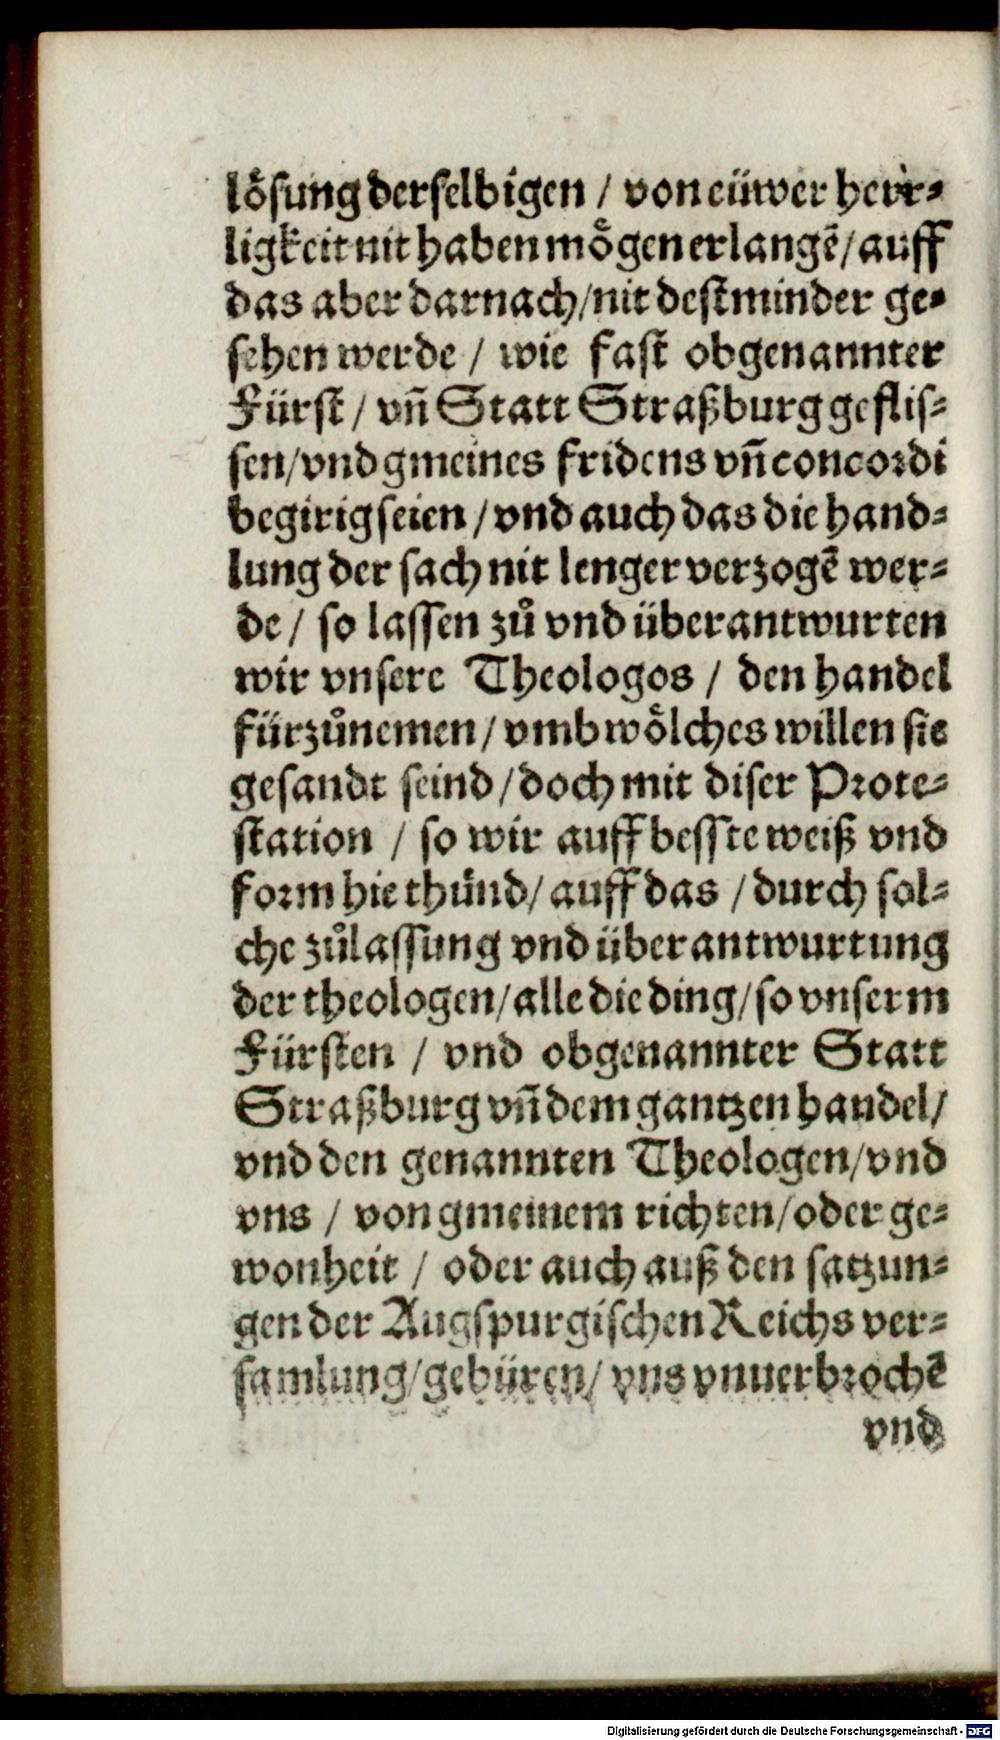 loͤsung derselbigen / von eüwer herr⸗
ligkeit nit haben moͤgen erlangẽ / auff
das aber darnach / nit destminder ge⸗
sehen werde / wie fast obgenannter
Fürst / vñ Statt Straßburg geflis⸗
sen / vnd gmeines fridens vñ concordi
begirig seien / vnd auch das die hand⸗
lung der sach nit lenger verzogẽ wer⸗
de / so lassen zuͦ vnd überantwurten
wir vnsere Theologos / den handel
fürzuͦnemen / vmb woͤlches willen sie
gesandt seind / doch mit diser Prote⸗
station / so wir auff besste weiß vnd
form hie thuͦnd / auff das / durch sol⸗
che zuͦlassung vnd überantwurtung
der theologen / alle die ding / so vnserm
Fürsten / vnd obgenannter Statt
Straßburg vñ dem gantzen handel /
vnd den genannten Theologen / vnd
vns / von gmeinem richten / oder ge⸗
wonheit / oder auch auß den satzun⸗
gen der Augspurgischen Reichs ver⸗
samlung / gebüren / vns vnuerbrochẽ
vnd
Digitalisierung gefördert durch die Deutsche Forschungsgemeinschaft - DFG